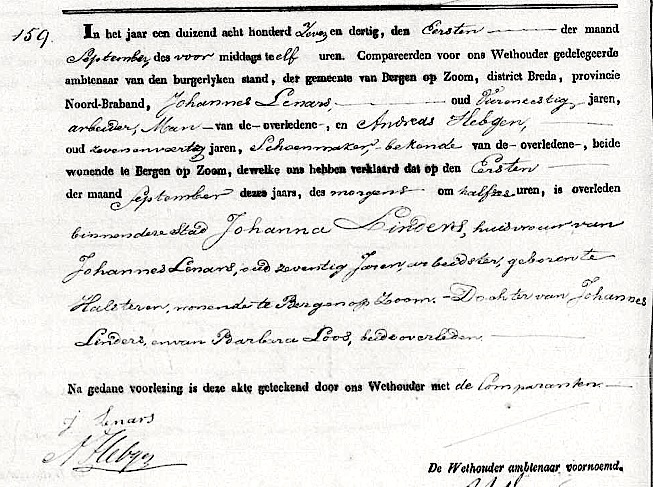 159. In het jaar een duizend acht honderd Zeven en dertig, den Eersten der maand
September des voor middags te elf uren. Compareerden voor ons Wethouder gedelegeerde
ambtenaar van den burgerlyken stand, der gemeente van Bergen op Zoom, district Breda, provincie
Noord-Braband, Johannes Lenars, oud jaren,
arbeider, Man van de overledene, en Andreas Hebgen,
oud zevenenveertig jaren, Schoenmaker, bekende van de overledene, beide
wonende te Bergen op Zoom, dewelke ons hebben verklaard dat op den Eersten
der maand September dezes jaars, des morgens om half zes uren, is overleden
binnen deze Stad Johanna Linders, huisvrouw van
Johannes Lenars, oud zeventig Jaren, arbeidster, geboren te
Halsteren, wonende te Bergen op Zoom. Dochter van Johannes
Linders, en van Barbara Loos, beide overleden.
Na gedane voorlezing is deze akte geteekend door ons Wethouder met de Comparanten.
j Lenars
A Hebgen
De Wethouder ambtenaar voornoemd.